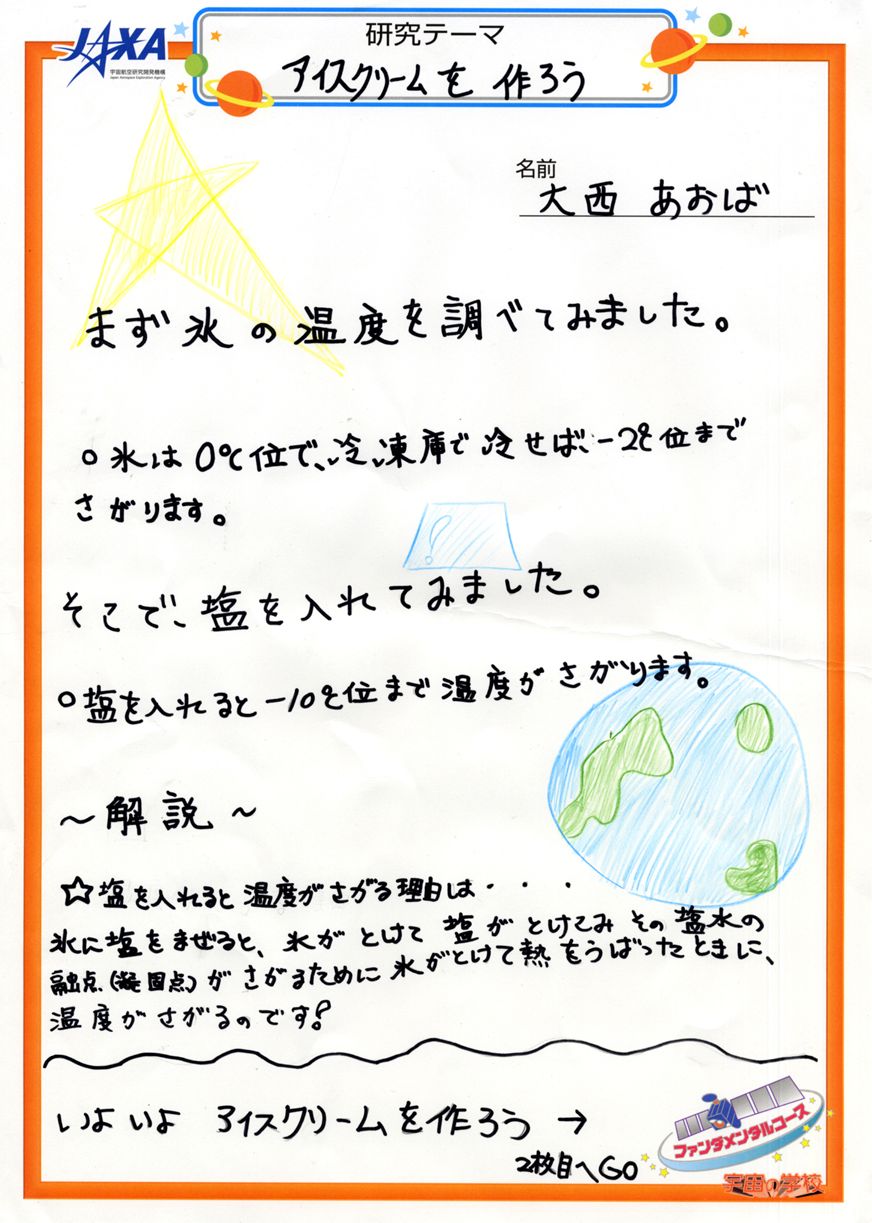 JAXA
宇宙航空研究開発機構
Japan Aerospace Exploration Agency
研究テーマ
アイスクリームを 作ろう
名前
大西 あおば
まず 氷の温度を調べてみました。
○氷は0℃位で、冷凍庫で冷せば、-2℃位まで
さがります。
そこで、塩を入れてみました。
○塩を入れると-10℃位まで温度がさがります。
～解説～
☆塩を入れると温度がさがる理由は・・・
氷に塩をまぜると、氷が とけて 塩が とけこみ その 塩水の
融点(凝固点)が さがるために 氷がとけて熱をうばったときに、
温度が さがるのです!
いよいよ アイスクリームを作ろう →
2枚目へGO
ファンダメンタルコース
宇宙の学校